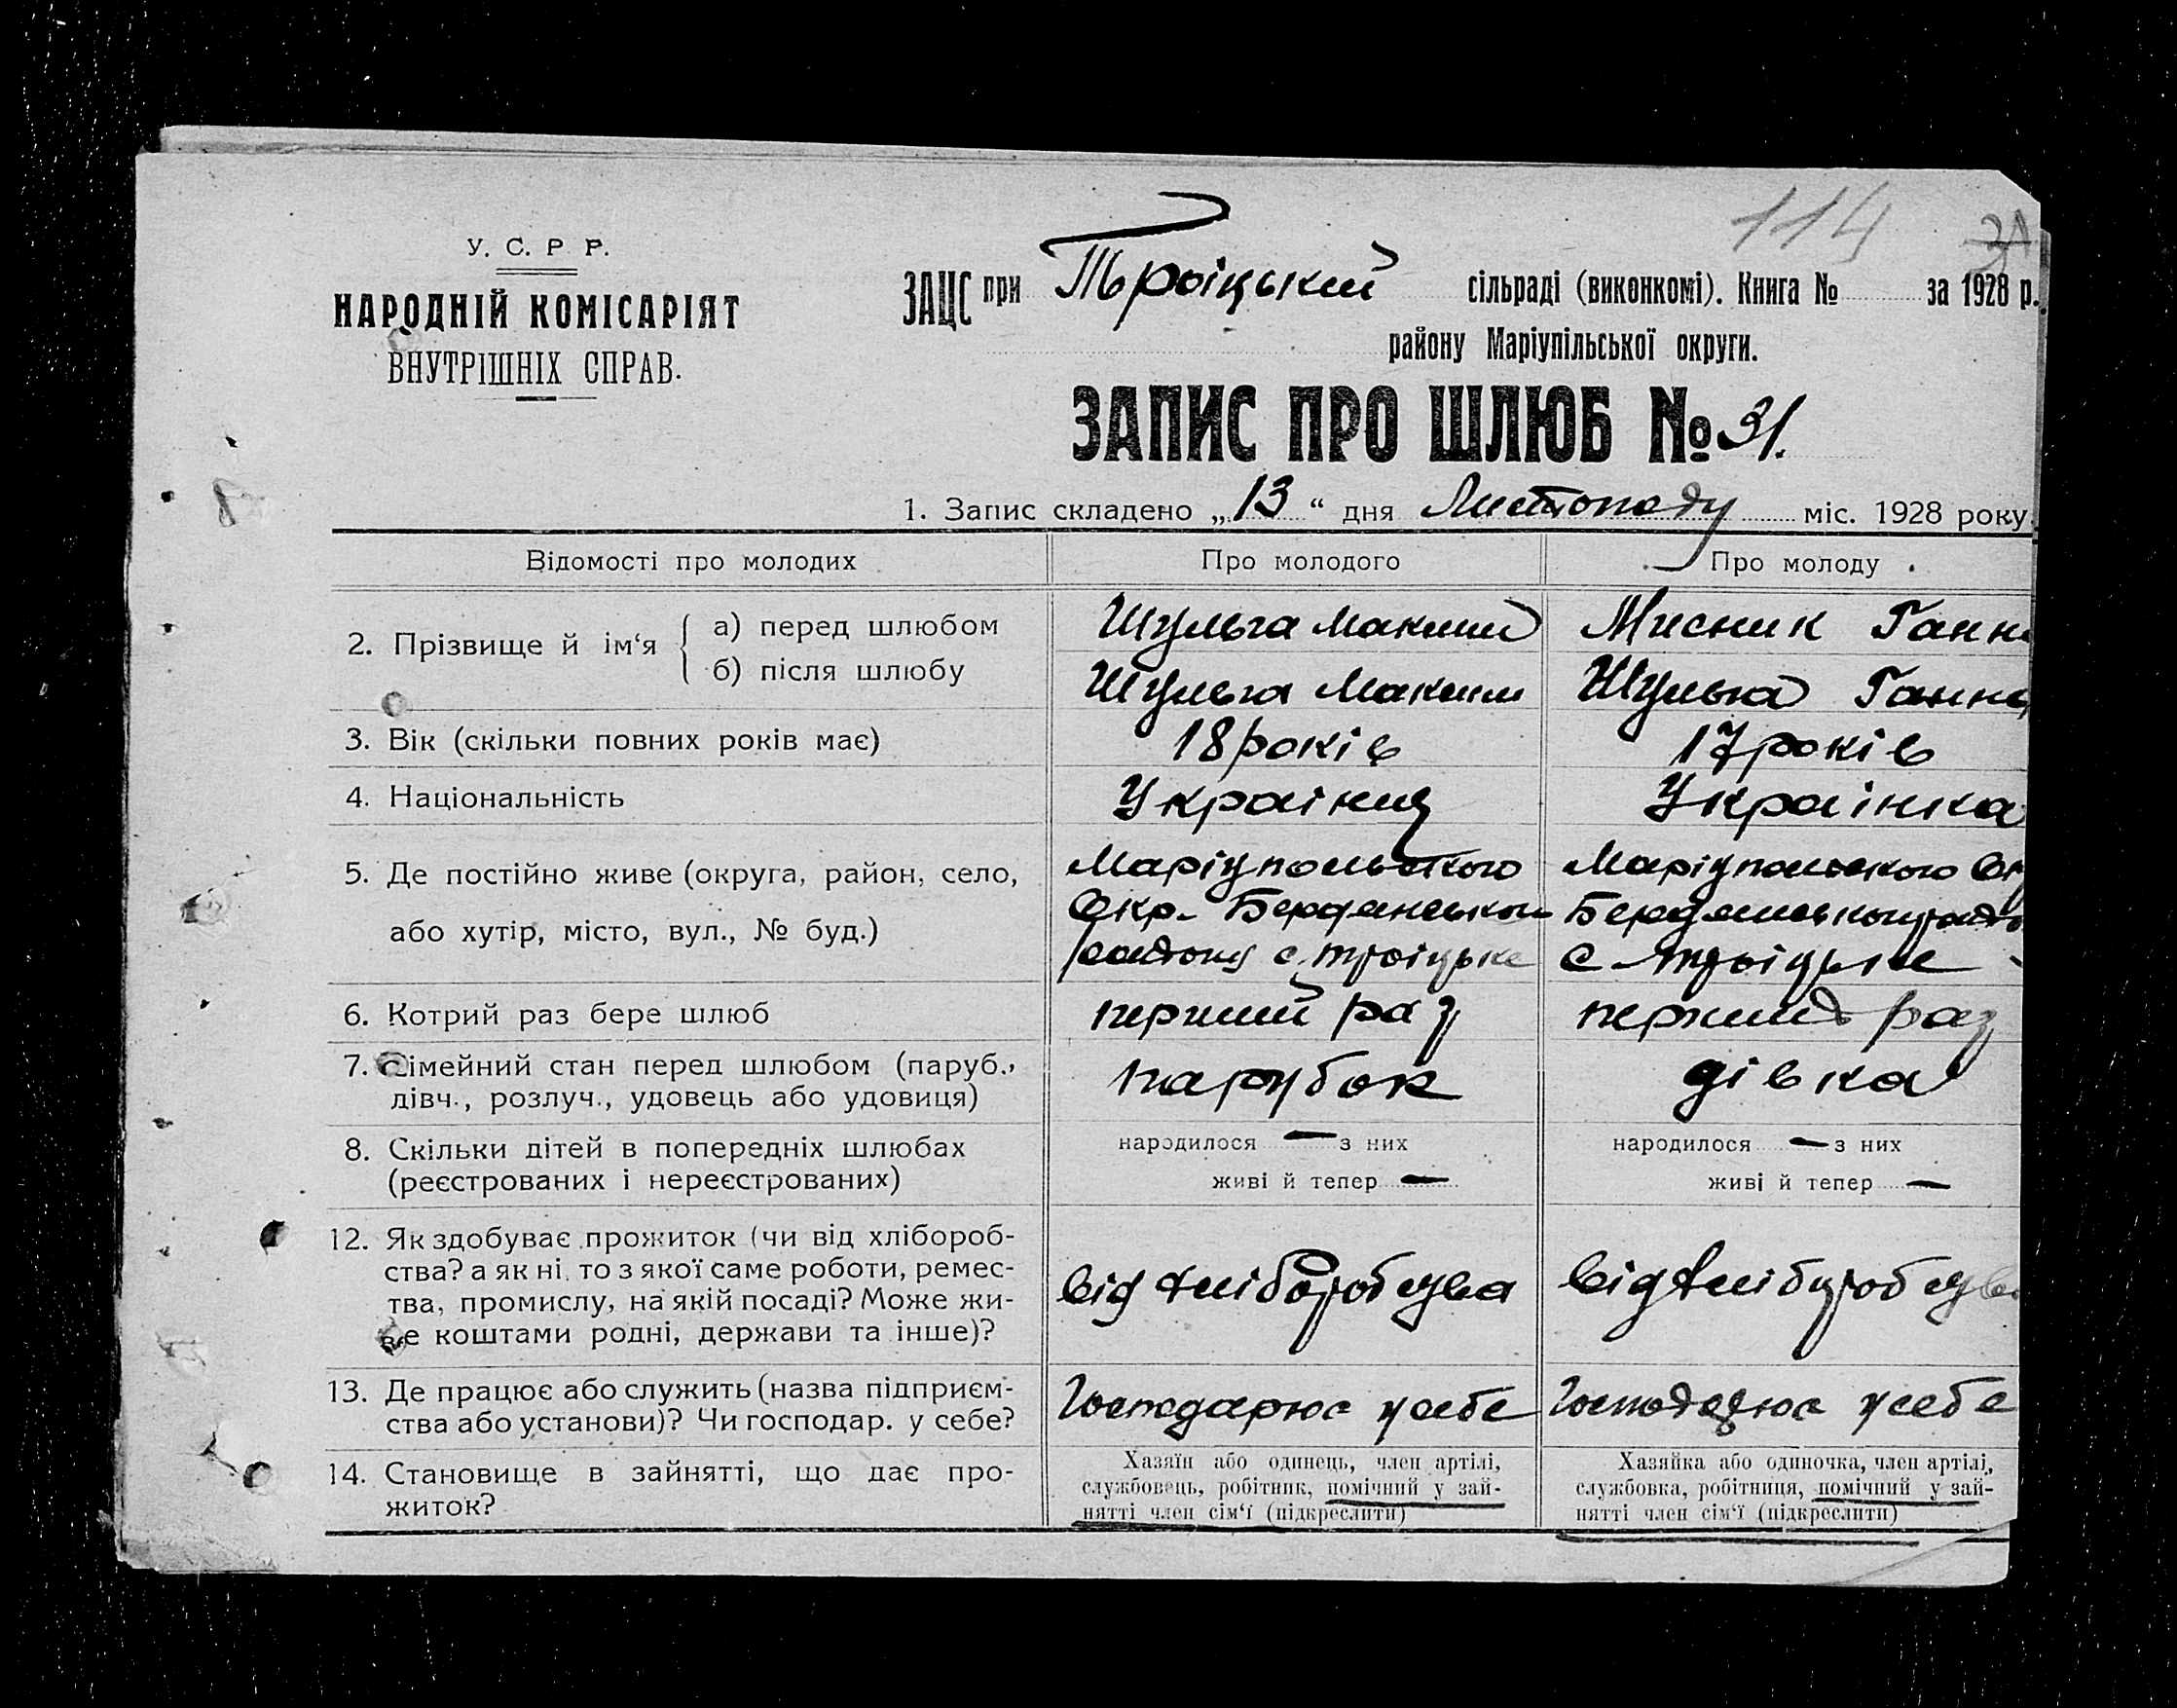 114 31
У. С. Р. Р.
НАРОДНІЙ КОМІСАРІЯТ
ВНУТРІШНІХ СПРАВ.
ЗАЦС при Троіцький сільраді (виконкомі). Книга № за 1928 р.
району Маріупільської округи.
ЗАПИС ПРО ШЛЮБ № 31.
1. Запис складено „13“ дня Листопаду міс. 1928 року
Відомості про молодих Про молодого Про молоду
2. Прізвище й ім‘я { а) перед шлюбом Шульга Максим Мисник Ганн
б) після шлюбу Шульга Максим Шульга Ганна
3. Вік (скільки повних років має) 18 років 17 років
4. Національність Украінец Украінка
5. Де постійно живе (округа, район, село,
або хутір, місто, вул., № буд.)
Маріупольского
Окр. Бердянського
району с. Троіцьке
Маріупольского Ок
Бердянського
с Троіцьке
6. Котрий раз бере шлюб перший раз перший раз
7. Сімейний стан перед шлюбом (паруб.,
дівч., розлуч., удовець або удовиця)
парубок дівка
8. Скільки дітей в попередніх шлюбах
(реєстрованих і нереєстрованих)
народилося — з них
живі й тепер —
народилося — з них
живі й тепер —
12. Як здобуває прожиток (чи від хлібороб-
ства? а як ні, то з якої саме роботи, ремес-
тва, промислу, на якій посаді? Може жи-
ве коштами родні, держави та інше)?
від хліборобцва від
13. Де працює або служить (назва підприєм-
ства або установи)? Чи господар. у себе?
Господарює у себе Господарює у себе
14. Становище в зайнятті, що дає про-
житок?
Хазяїн або одинець, член артілі,
службовець, робітник, помічний у зай-
нятті член сім‘ї (підкреслити)
Хазяйка або одиночка, член артілі,
службовка, робітниця, помічний у зай-
нятті член сім‘ї (підкреслити)